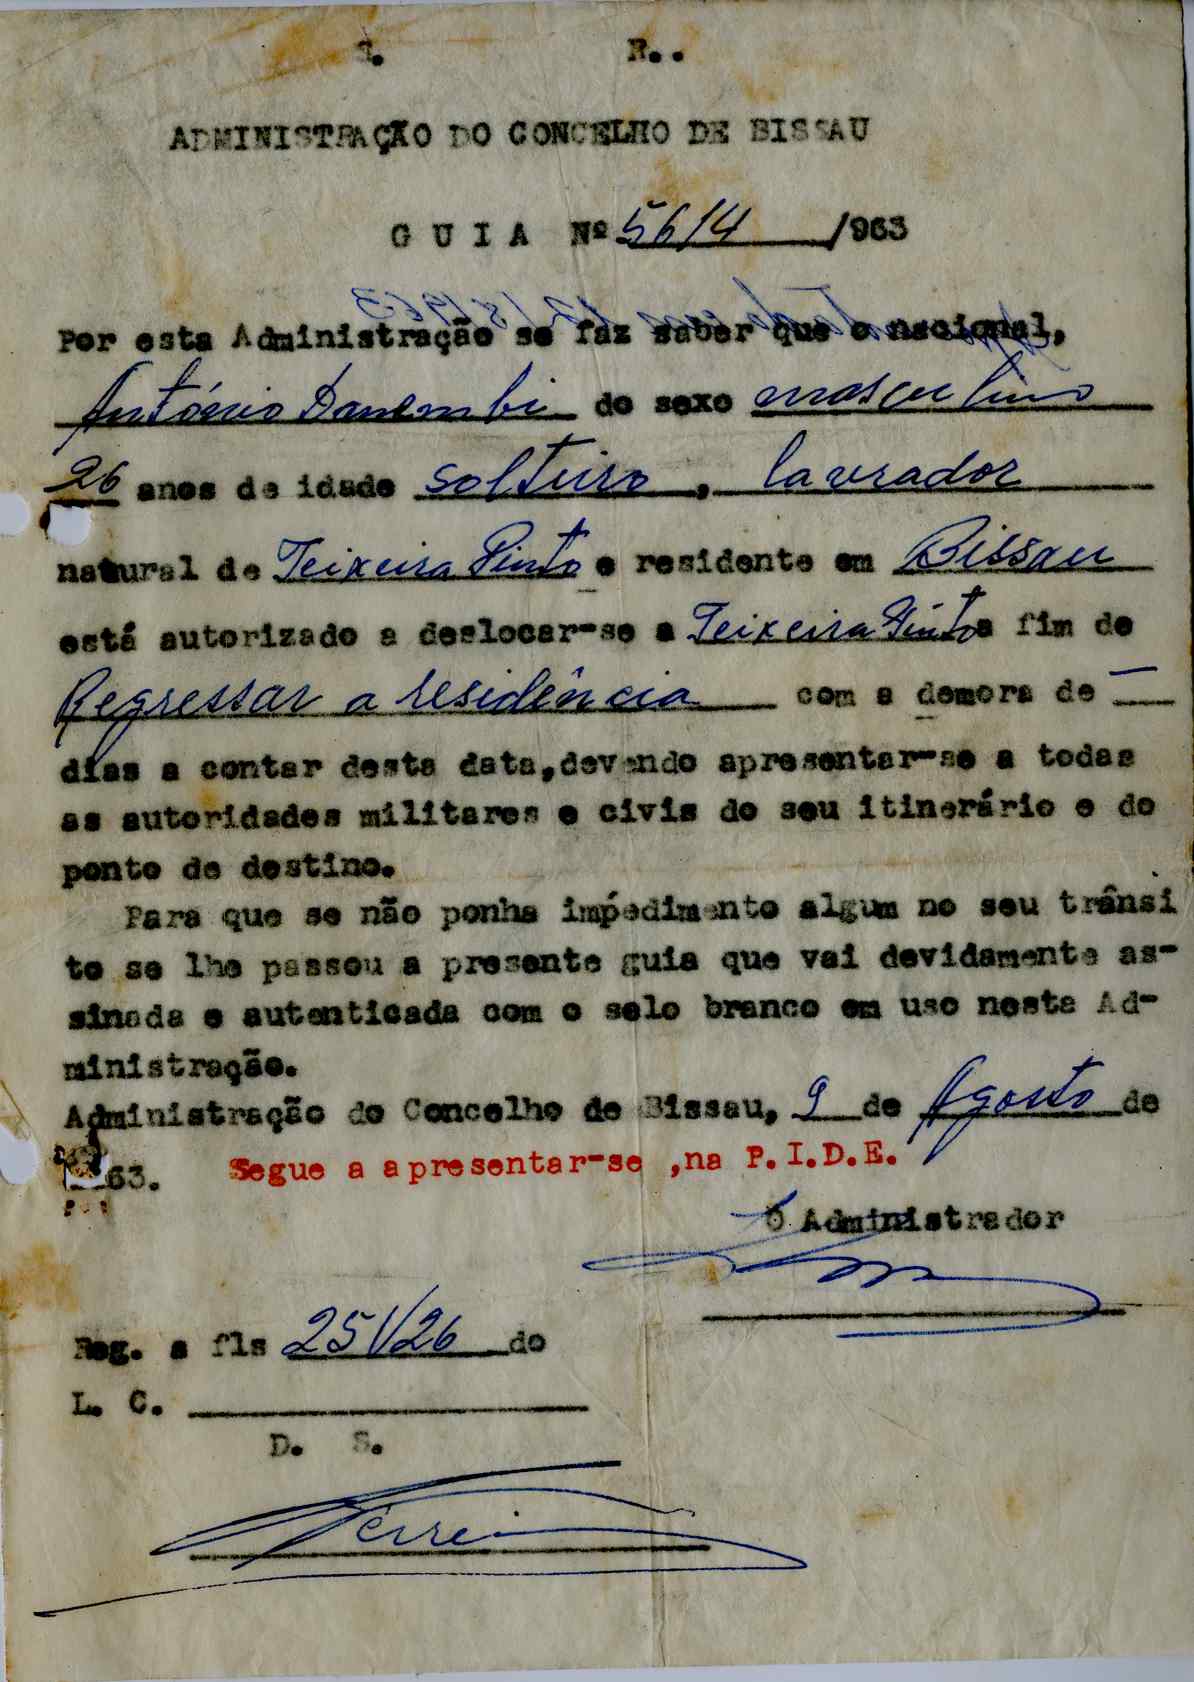 R..
ADMINISTRAÇÃO DO CONCELHO DE BISSAU
G U I A Nº 5614/963
Por esta Administração se faz saber que o nacional,
António Danembi do sexo masculino
26 anos de idade solteiro, lavrador
natural de Teixeira Pinto e residente em Bissau
está autorizado a deslocar-se a Teixeira Pinto a fim de
Regressar a residência com a demora de —
dias a contar desta data,devendo apresentar-se a todas
as autoridades militares e civis do seu itinerário e do
ponto de destino.
Para que se não ponha impédimento algum no seu trânsi
to se lhe passou a presente guia que vai devidamente as-
sinada e autenticada com o selo branco em uso nesta Ad-
ministração.
Administração do Concelho de Bissau, 9 de Agosto de
63. Segue a apresentar-se ,na P.I.D.E.
O Administrador
Reg. a fls 25V/26 do
L. C.
D. S.